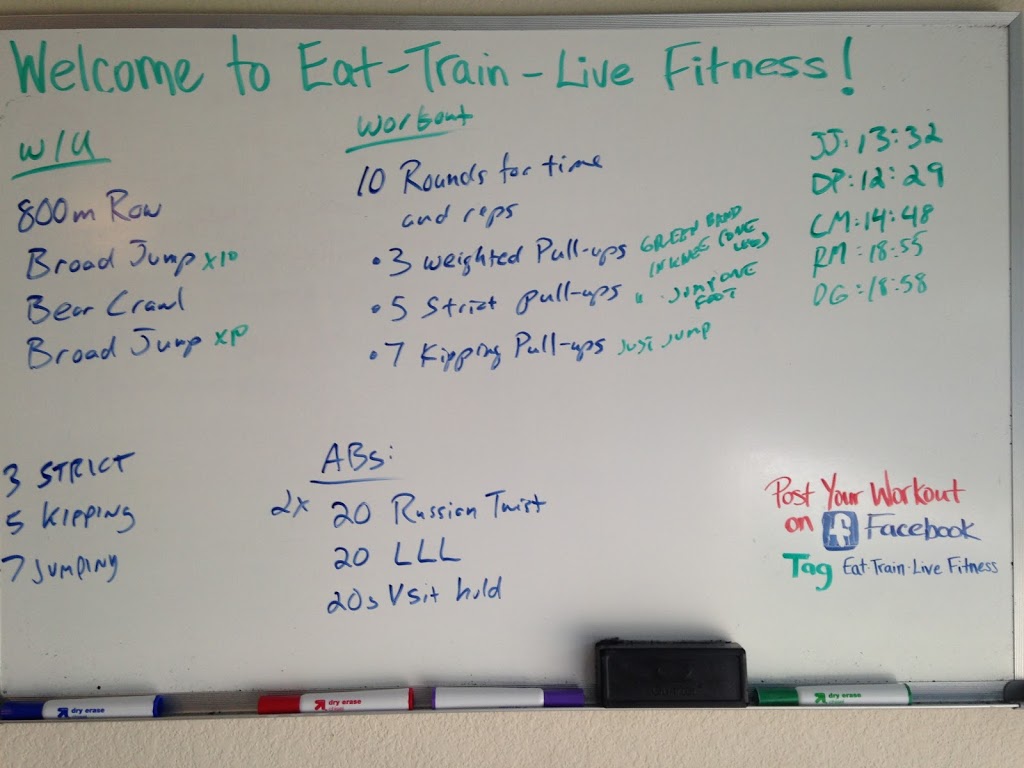 Welcome to Eat-Train-Live Fitness!
W/U
800m Row
Broad Jump x10
Bear Crawl
Broad Jump x10
Workout
10 Rounds for time
and reps
• 3 weighted Pull-ups GREEN BAND
IN KNEE (ONE
LEG)
• 5 Strict pull-ups " JUMP ONE
FOOT
• 7 Kipping Pull-ups JUST JUMP
JJ: 13:32
DP: 12:29
CM: 14:48
RM: 18:55
DG: 18:58
3 STRICT
5 KIPPING
7 JUMPING
ABs:
2x 20 Russian Twist
20 LLL
20s V sit hold
Post Your Workout
on f Facebook
Tag Eat·Train·Live Fitness
dry erase
dry erase
dry erase